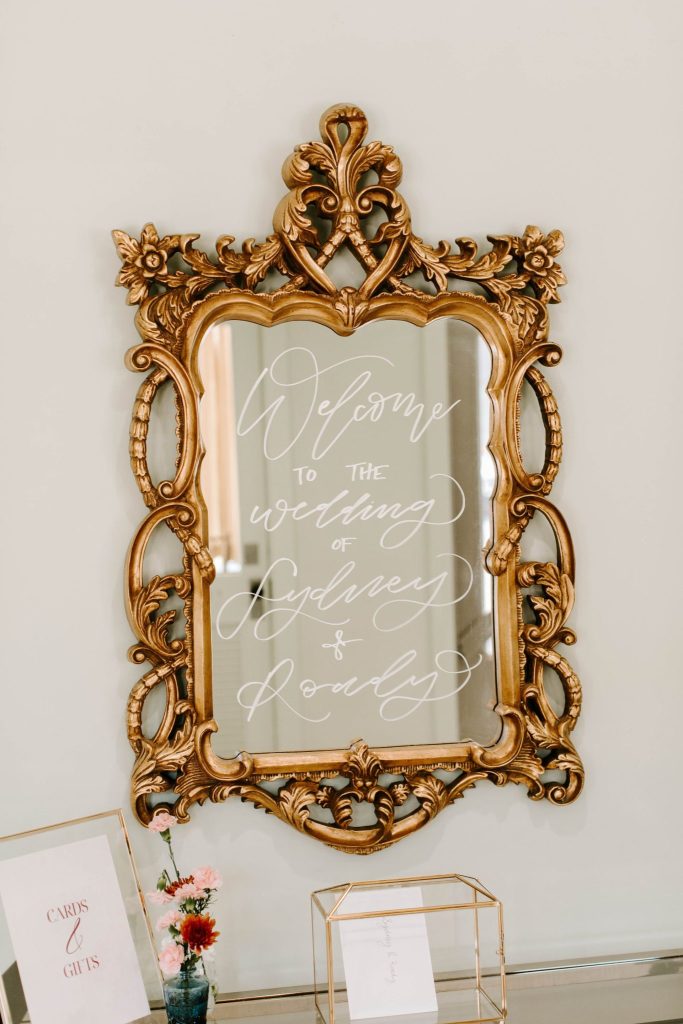 Welcome
TO THE
wedding
OF
Sydney
&
Roady
CARDS
&
GIFTS